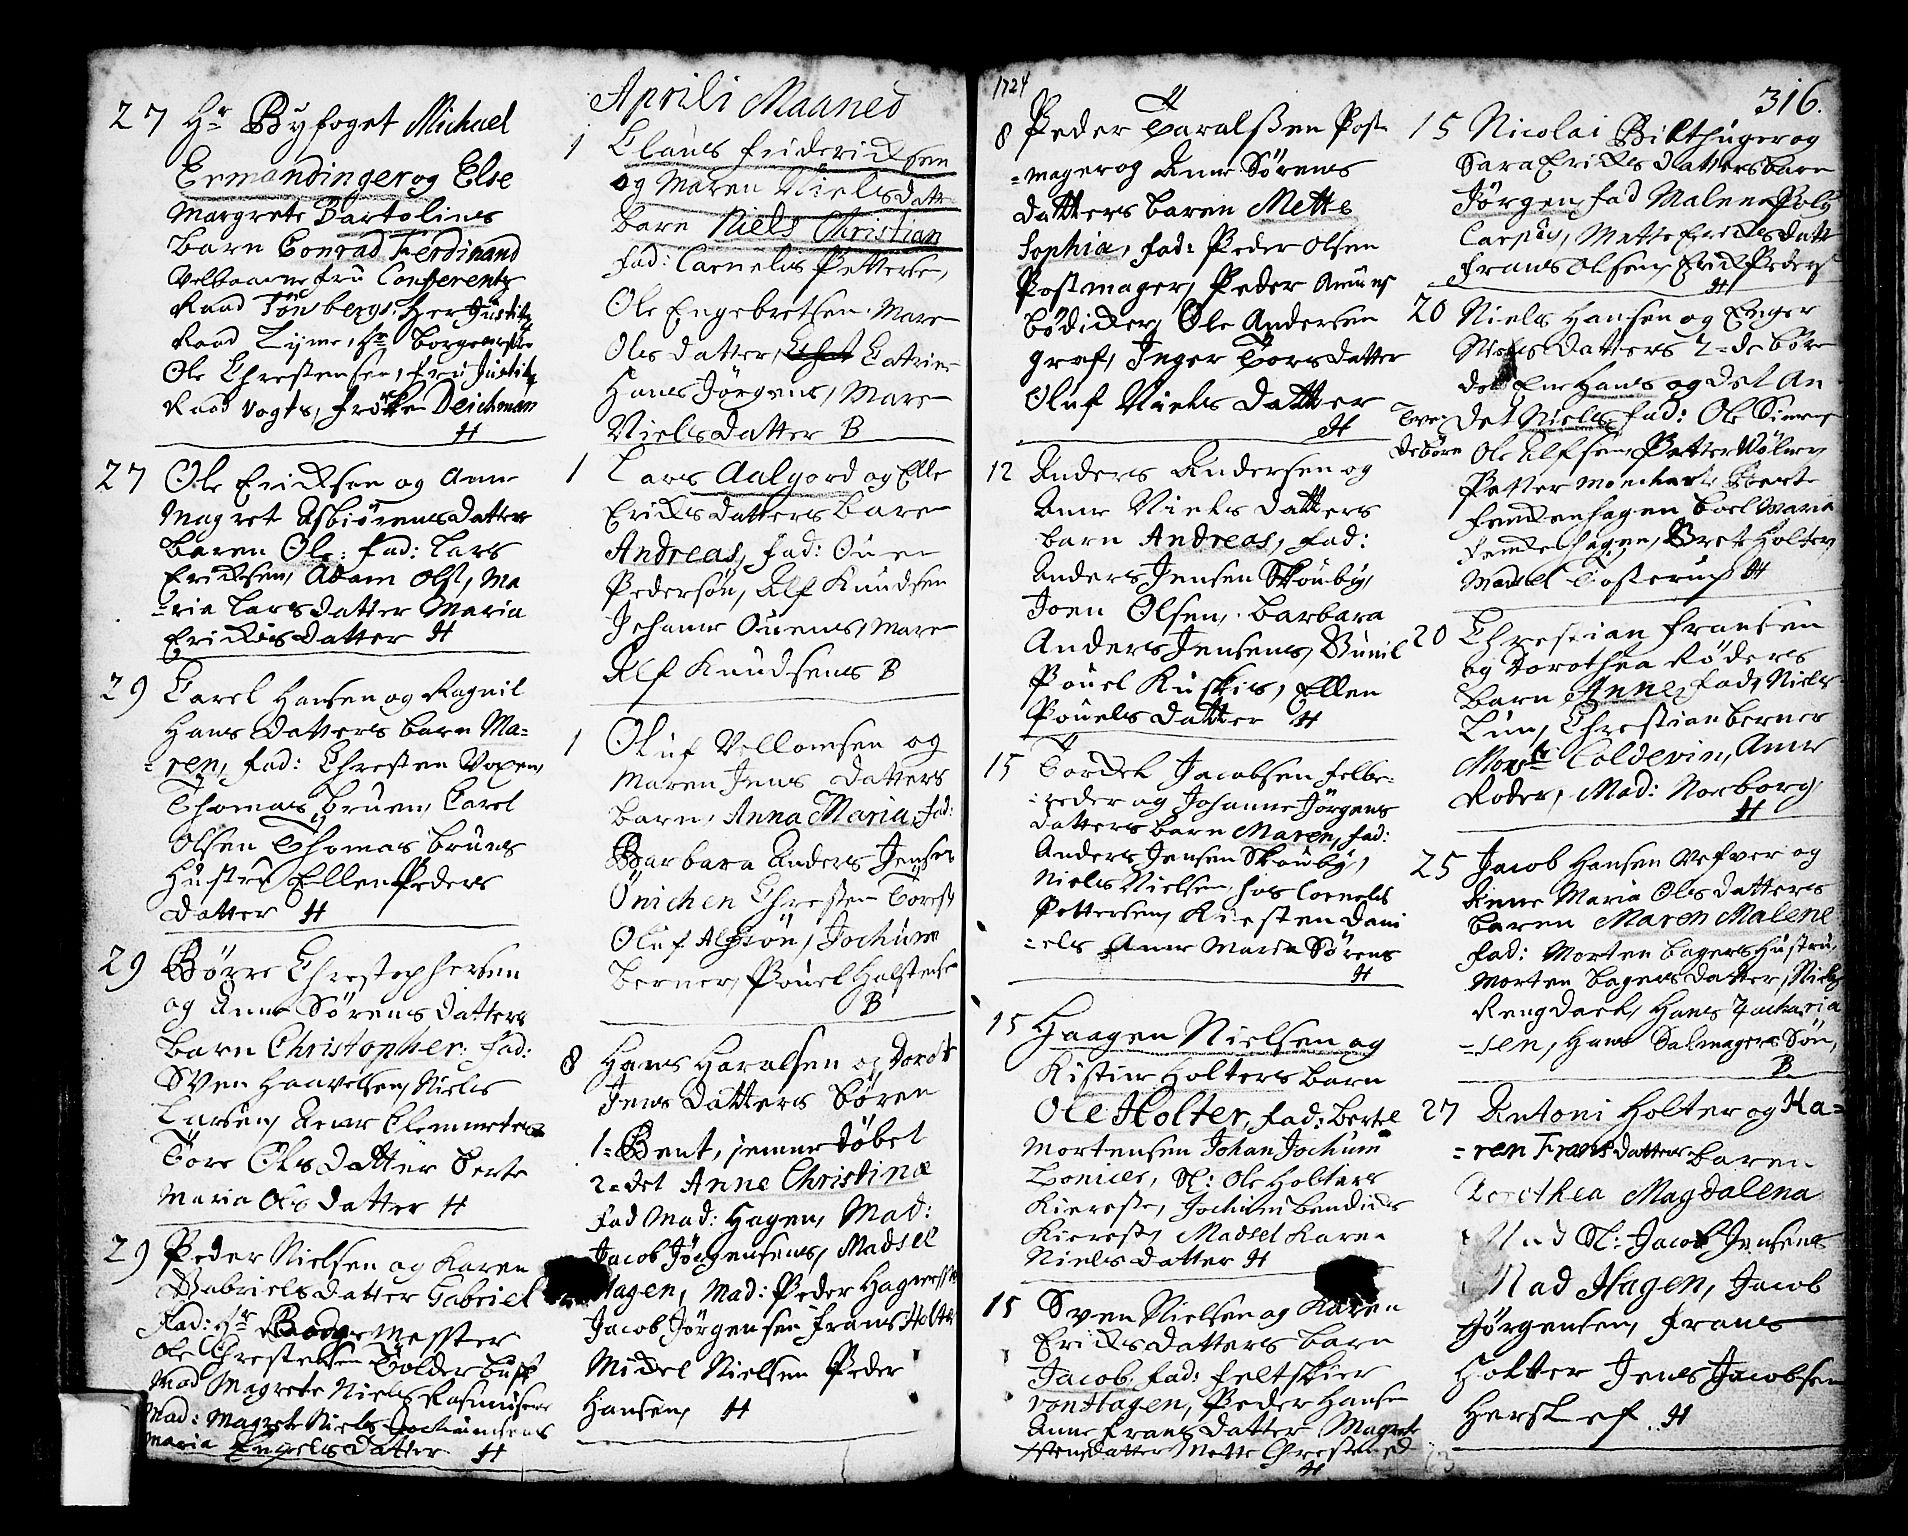 27 Hr Byfoget Michael
Ermandinger og Else
Margrete Bartolins
barn Conrad Ferdinand
Velbaarne fru Conferentz
Raad Tönsbergs, Her Justitz
Raad Lyme, Hr Borgemester
Ole Chrestensen, fru Justitz
Raad Vogts, fröken Deichman
H
27 Ole Ericksen og Anne
Magrete Asbiörensdatters
baren Ole: fad: Lars
Ericksen, Adam Olss, Ma
=ria Larsdatter Maria
Ericksdatter H
29 Carel Hansen og Ragnil
Hans datters barn Ma=
=ren, fad: Chresten
Thomas Bruen, Carel
Olsen Thomas Bruns
Hustru Ellen Peders
datter H
29 Börre Chrestophersen
og Anne Sörens datters
barn Christopher: fad:
Sven Haavelsen, Niels
Larsen, Anne
Tore Ols datter Berte
Maria Ols datter H
29 Peder Nielsen og Karen
Gabriels datter Gabriel
fad: Hr Borgemester
Ole Chrestensen
Mad Magrete Niels Rasmusens
Mad: Magrete Niels Jochumsens
Maria Engels datter H
Aprili Maaned
1 Claus Friderichsen
og Maren Nielsdatr
barn Niels Christian
fad: Cornelis Pettersen,
Ole Engebretsen, Maren
Ols datter, Catrine
Hans Jörgens, Maren
Nielsdatter B
1 Lars Aalgord og Elle
Ericksdatters baren
Andreas, fad: Ouen
Pedersön, Alf Knudsen
Johanne Ouens, Maren
Alf Knudsens B
1 Oluf Vellomsen og
Maren Jens datters
barn, Anna Maria, fad:
Barbara Anders Jensens
Önichen Chresten
Oluf, Jochum
Berner, Pouel Halstensen
B
8 Hans Haralsen og Dorte
Jens datters Bören
1= Bent, hemme döbet
2=det Anne Christina
fad Mad: Hagen, Mad:
Jacob Jörgensens, Madsel
Hagen, Mad: Peder
Jacob Jörgensen Frans Holter
Mickel Nielsen Peder
Hansen, H
1724
8 Peder Taralssen Post
=mager og Anne Sörens
datters baren Mette
Sophia, fad: Peder Olsen
Postmager, Peder
Bödicker, Ole Andersen
Graf, Inger Torsdatter
Oluf Niels datter
H
12 Anders Andersen og
Anne Niels datters
barn Andreas, fad:
Anders Jensen Skouby,
Joen Olsen, Barbara
Anders Jensens, Gunil
Pouel Kuskis, Ellen
Pouels datter H
15 Tordel Jacobsen felbe=
=reder og Johanne Jörgens
datters barn Maren, fad:
Anders Jensen Skouby,
Niels Nielsen, hos Cornelis
Pettersen, Kiersten Dani
=els Anne Maria Sörens
H
15 Haagen Nielsen og
Kistine Holters barn
Ole Holter, fad: Bertel
Mortensen Johan Jochum
Sl: Ole Holters
Kiereste, Jochum Bendicks
Kiereste, Madsel Karen
Niels datter H
15 Sven Nielsen og Karen
Ericksdatters barn
Jacob, fad: Feltskier
von Hagen, Peder Hansen
Anne Frans datter Magrete
datter Mette
H
316.
15 Nicolai Bilthuger og
Sara Ericks datters barn
Jörgen, fad Malene Poly
Carpus, Mette Ericksdatter
Frans Olsen, Erick Peders
H
20 Niels Hansen og Inger
Niels datters 2=de Börn
det Ene Hans og det An
Tve det Niels, fad: Ole
de Börn Ole Alfsen, Petter Wölner,
Petter Berte
Boel Maria
Brete Holter,
Madsel Tosterup H
20 Chrestian Fransen
og Dorothea Röders
barn Anne, fad, Niels
Lun, Chrestian Berner
Monsr Coldevin, Anne
Röder, Mad: Norborg,
H
25 Jacob Hansen Vefver og
Anne Maria Ols datters
baren Maren Malene
fad: Morten Bagers Hustru,
Morten Bagers datter, Niels
Hans Zacharia
=sen, Hans Salmagers Sön,
B
27 Antoni Holter og Ma=
=ren Frans datters baren
Dorothea Magdalena
Mad Sl: Jacob Jensens
Mad Hagen, Jacob
Jörgensen, Frans
Holter Jens Jacobsen
Herslef. H